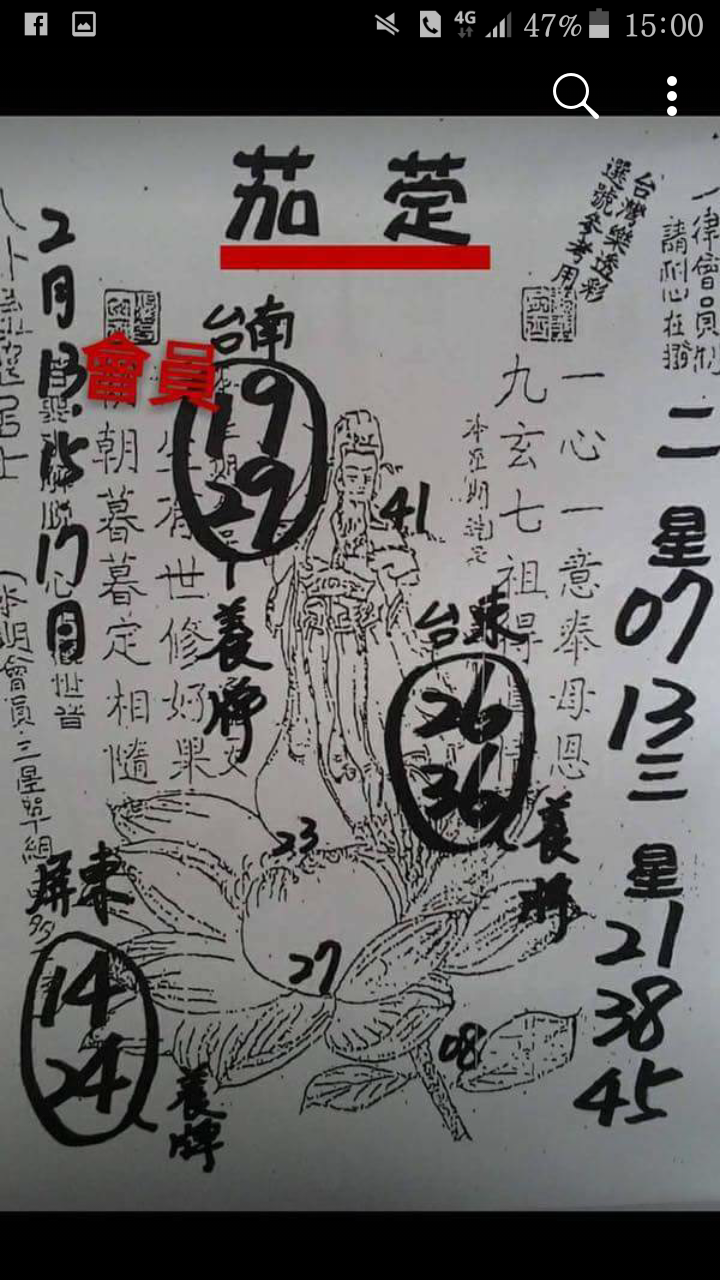 4G 47% 15:00
茄萣
台灣樂透彩
選號參考用
一律會員制
請耐心在撥
二星
07
13
三星
21
38
45
一心一意奉母恩
九玄七祖得
台南
19
29
養牌
41
台東
26
36
養牌
會員
2月13.15.17日
朝暮暮定相隨
世修好果
23
27
08
屏東
14
24
養牌
本期會員三星單組